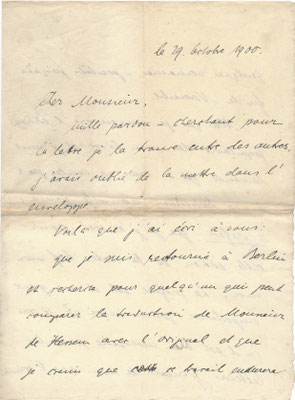 le 29. octobre 1900.
Cher Monsieur,
mille pardon – cherchant pour
la lettre je la trouve entre des autres,
j'avais oublié de la mettre dans l'
enveloppe.
Voilà que j'ai écri à vous:
que je suis retourné à Berlin
et recherca pour quelqu'un qui peut
comparer la traduction de Monsieur
de Hessem avec l'original et que
je crains que ce travail endurera